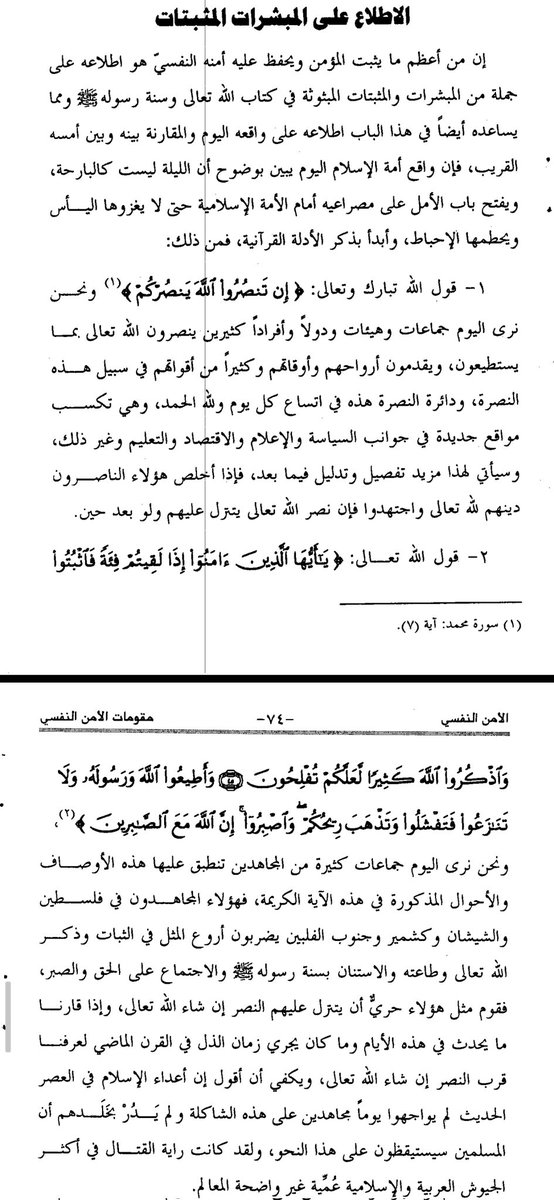 الاطلاع على المبشرات المثبتات
إن من أعظم ما يثبت المؤمن ويحفظ عليه أمنه النفسيّ هو اطلاعه على
جملة من المبشرات والمثبتات المبثوثة في كتاب الله تعالى وسنة رسوله ﷺ ومما
يساعده أيضاً في هذا الباب اطلاعه على واقعه اليوم والمقارنة بينه وبين أمسه
القريب، فإن واقع أمة الإسلام اليوم يبين بوضوح أن الليلة ليست كالبارحة،
ويفتح باب الأمل على مصراعيه أمام الأمة الإسلامية حتى لا يغزوها اليـــأس
ويحطمها الإحباط، وأبدأ بذكر الأدلة القرآنية، فمن ذلك:
١- قول الله تبارك وتعالى: ﴿ إِن تَنصُرُواْ ٱللَّهَ يَنصُرْكُمْ ﴾(١) ونحـــن
نرى اليوم جماعات وهيئات ودولاً وأفراداً كثيرين ينصرون الله تعالى بمـــا
يستطيعون، ويقدمون أرواحهم وأوقاتهم وكثيراً من أقواتهم في سبيل هـــذه
النصرة، ودائرة النصرة هذه في اتساع كل يوم ولله الحمد، وهي تكســـب
مواقع جديدة في جوانب السياسة والإعلام والاقتصاد والتعليم وغير ذلك،
وسيأتي لهذا مزيد تفصيل وتدليل فيما بعد، فإذا أخلص هؤلاء الناصـــرون
دينهم لله تعالى واجتهدوا فإن نصر الله تعالى يتنزل عليهم ولو بعد حين.
٢- قول الله تعـــالى: ﴿ يَـٰٓأَيُّهَا ٱلَّذِينَ ءَامَنُوٓاْ إِذَا لَقِيتُمْ فِئَةً فَٱثْبُتُواْ
(١) سورة محمد: آية (٧).
الأمن النفسي
-٧٤-
مقومات الأمن النفسي
وَٱذْكُرُواْ ٱللَّهَ كَثِيرًا لَّعَلَّكُمْ تُفْلِحُونَ ۝٤٥ وَأَطِيعُواْ ٱللَّهَ وَرَسُولَهُۥ وَلَا
تَنَـٰزَعُواْ فَتَفْشَلُواْ وَتَذْهَبَ رِيحُكُمْ ۖ وَٱصْبِرُوٓاْ ۚ إِنَّ ٱللَّهَ مَعَ ٱلصَّـٰبِرِينَ ﴾(٢)،
ونحن نرى اليوم جماعات كثيرة من المجاهدين تنطبق عليها هذه الأوصـــاف
والأحوال المذكورة في هذه الآية الكريمة، فهؤلاء المجاهـــدون في فلسطين
والشيشان وكشمير وجنوب الفلبين يضربون أروع المثل في الثبات وذكـــر
الله تعالى وطاعته والاستنان بسنة رسوله ﷺ والاجتماع على الحق والصبر،
فقوم مثل هؤلاء حريٌّ أن يتنزل عليهم النصر إن شاء الله تعالى، وإذا قارنـــا
ما يحدث في هذه الأيام وما كان يجري زمان الذل في القرن الماضي لعرفنـــا
قرب النصر إن شاء الله تعالى، ويكفي أن أقول إن أعداء الإسلام في العصر
الحديث لم يواجهوا يوماً مجاهدين على هذه الشاكلة و لم يَـــدُرْ بخَلَـــدهم أن
المسلمين سيستيقظون على هذا النحو، ولقد كانت راية القتـــال في أكثـــر
الجيوش العربية والإسلامية عُمِّية غير واضحة المعالم.